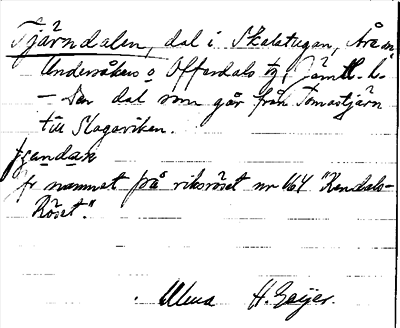 Tjärndalen, dal i Skalstugan, Åre sn
Undersåkers o Offerdals tg, Jämtl. l.
— Den dal som går från Tomastjärn
till Slagaviken.
jfr namnet på riksröset nr 164 "Kendals-
Röset."
H. Geijer.